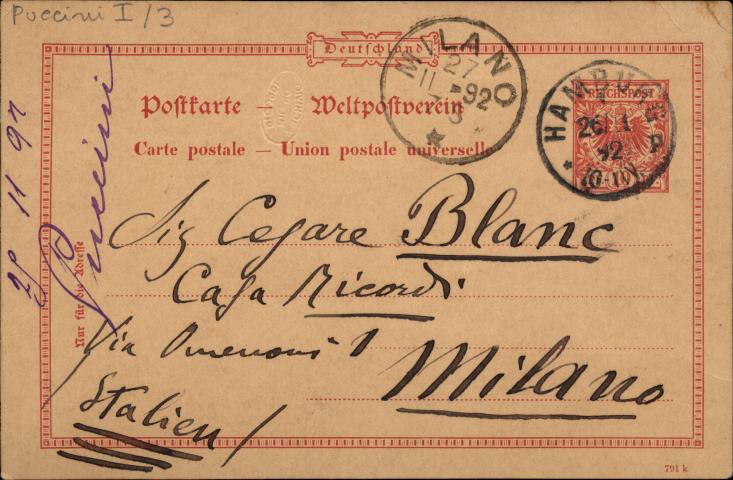 Puccini I/3
Deutschland
Postkarte – Weltpostverein
Carte postale – Union postale universelle
MILANO
27
11-92
HAMBURG
92
REICHSPOST
Sig Cesare Blanc
Casa Ricordi
Via Omenoni 1
Milano
Italien
Nur für die Adresse
Puccini
11 92
791 k